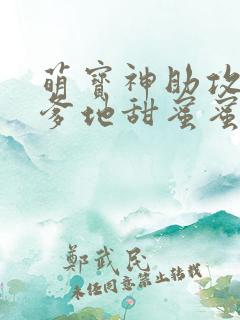 萌寳神助攻
爹地甜蜜蜜
鄭武民
未经同意禁止转载